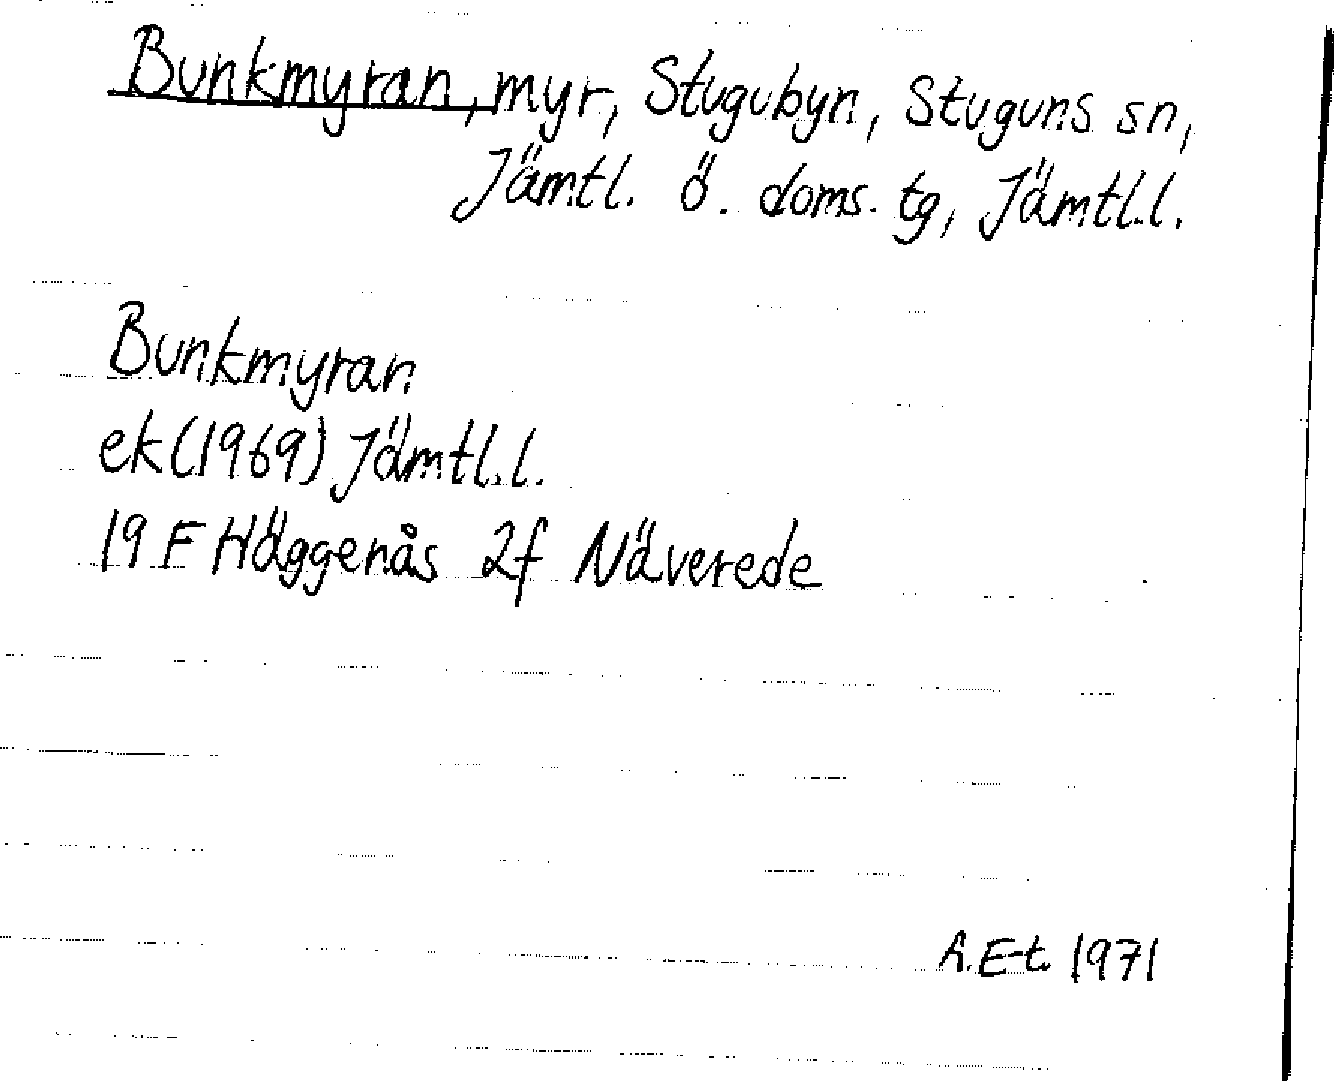 Bunkmyran, myr, Stugubyn, Stuguns sn,
Jämtl. ö. doms. tg, Jämtl.l.
Bunkmyran
ek (1969) Jämtl.l.
19 F Häggenås 2f Näverede
A.E-t. 1971